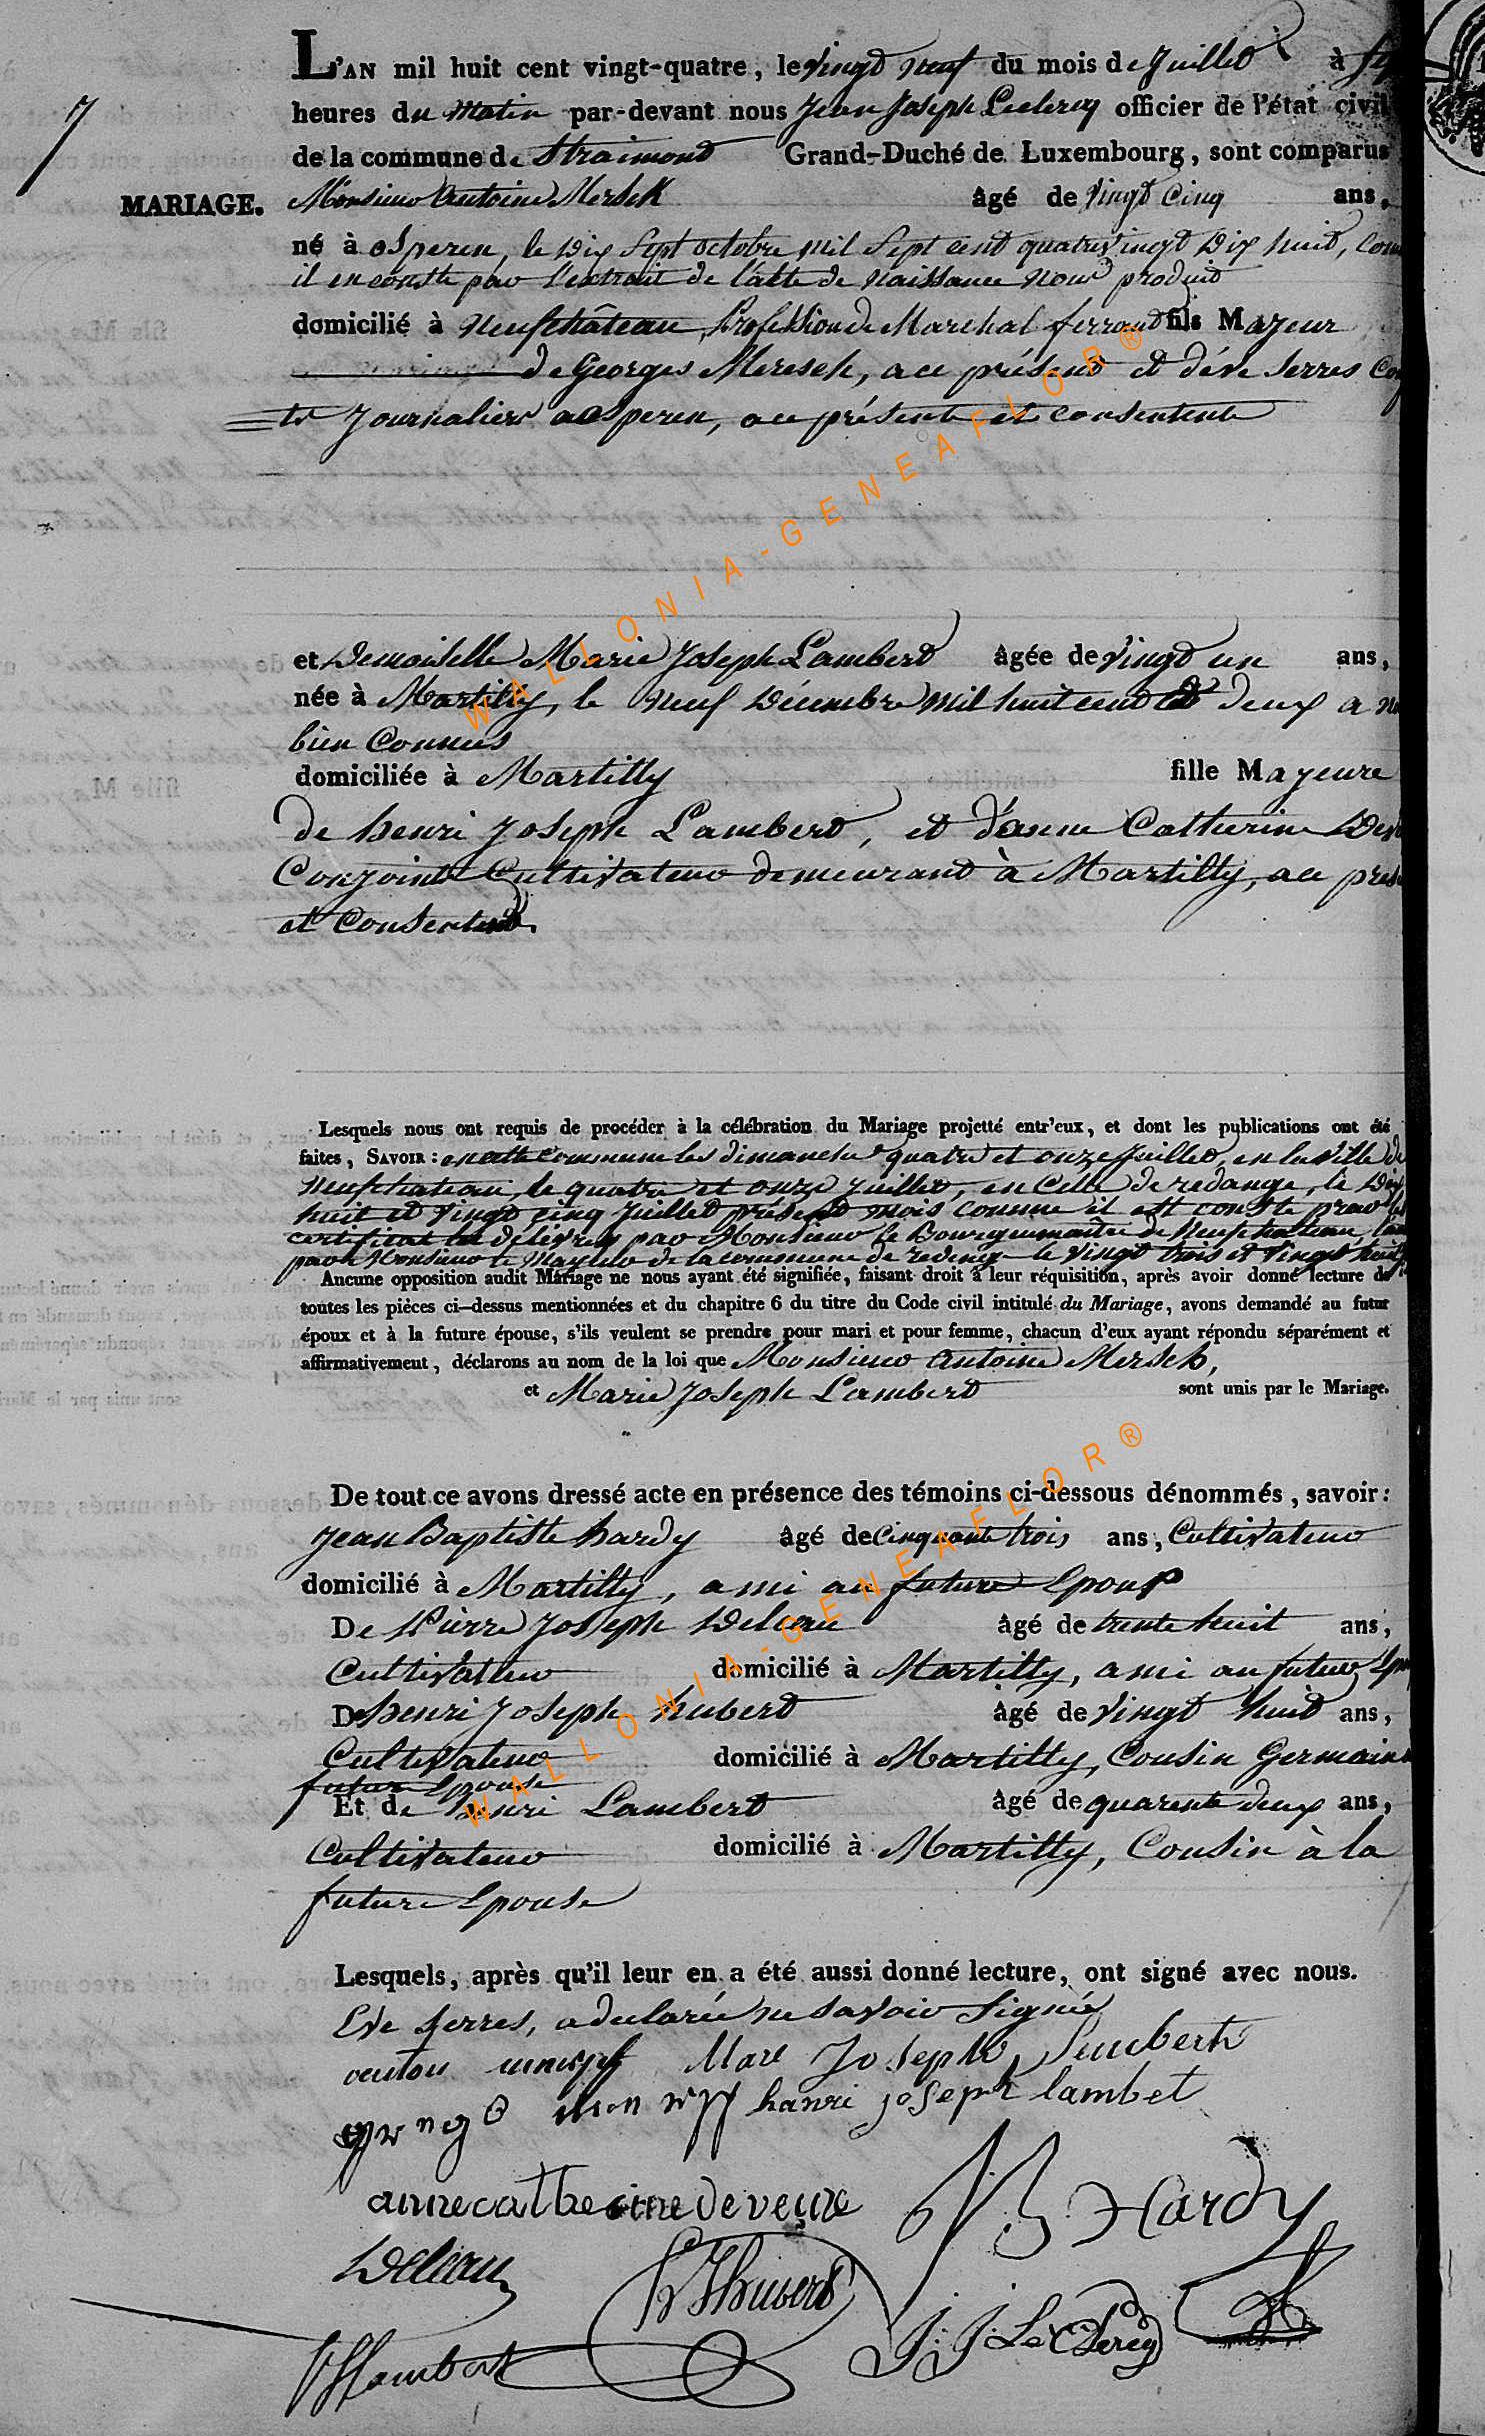 L'AN mil huit cent vingt-quatre, le vingt neuf du mois de Juillet à
heures du matin par-devant nous Jean Joseph Leclercq officier de l'état civil
de la commune de Straimont Grand-Duché de Luxembourg, sont comparus
7
MARIAGE.
Monsieur Antoine Mersch âgé de vingt cinq ans,
né à osperen, le dix sept octobre mil sept cent quatre vingt dix huit, com
il en conste par l'extrait de l'acte de naissance nous produit
domicilié à neufchâteau, profession de Marchal ferrant fils Majeur
de Georges Meresch, a ce présent et d'éve serres Con
ts Journaliers a osperen, a ce présente et consentente
et Demoiselle Marie Joseph Lambert âgée de vingt un ans,
née à Martilly, le neuf Décembre mil huit cent et deux a n
bien Connus
domiciliée à Martilly fille Majeure
de henri Joseph Lambert, et d'anne Catherine Dev
Conjoints Cultivateur demeurant à Martilly, a ce pres
et Consentent.
Lesquels nous ont requis de procéder à la célébration du Mariage projetté entr'eux, et dont les publications ont été
faites, SAVOIR: en cette commune les dimanche quatre et onze Juillet, en la ville de
neufchateau, le quatre et onze juillet, en celle de redange, le Dix
huit et vingt cinq Juillet présent mois comme il est conste par les
certificat délivrés par Monsieur le Bourguemaitre de Neufchateau,
par Monsieur le Mayeur de la commune de redeng le vingt trois et vingt huit
Aucune opposition audit Mariage ne nous ayant été signifiée, faisant droit à leur réquisition, après avoir donné lecture de
toutes les pièces ci-dessus mentionnées et du chapitre 6 du titre du Code civil intitulé du Mariage, avons demandé au futur
époux et à la future épouse, s'ils veulent se prendre pour mari et pour femme, chacun d'eux ayant répondu séparément et
affirmativement, déclarons au nom de la loi que Monsieur Antoine Mersch,
et Marie Joseph Lambert sont unis par le Mariage.
De tout ce avons dressé acte en présence des témoins ci-dessous dénommés, savoir:
Jean Baptiste hardy âgé de cinquante trois ans, Cultivateur
domicilié à Martilly, ami au future Epoux
De Pierre Joseph Deleau âgé de trente huit ans,
Cultivateur domicilié à Martilly, ami au futur
De henri Joseph hubert âgé de vingt huit ans,
Cultivateur domicilié à Martilly, Cousin Germain
future Epouse
Et de henri Lambert âgé de quarente deux ans,
Cultivateur domicilié à Martilly, Cousin à la
future Epouse
Lesquels, après qu'il leur en a été aussi donné lecture, ont signé avec nous.
Eve serres, a declarée ne savoir signée
Mare Joseph Lambert
hanri joseph lambet
anne catherine deveux JB Hardy
Deleau HJ Hubert J: J: Leclercq
HLambert
WALLONIA-GENEAFLOR®
WALLONIA-GENEAFLOR®